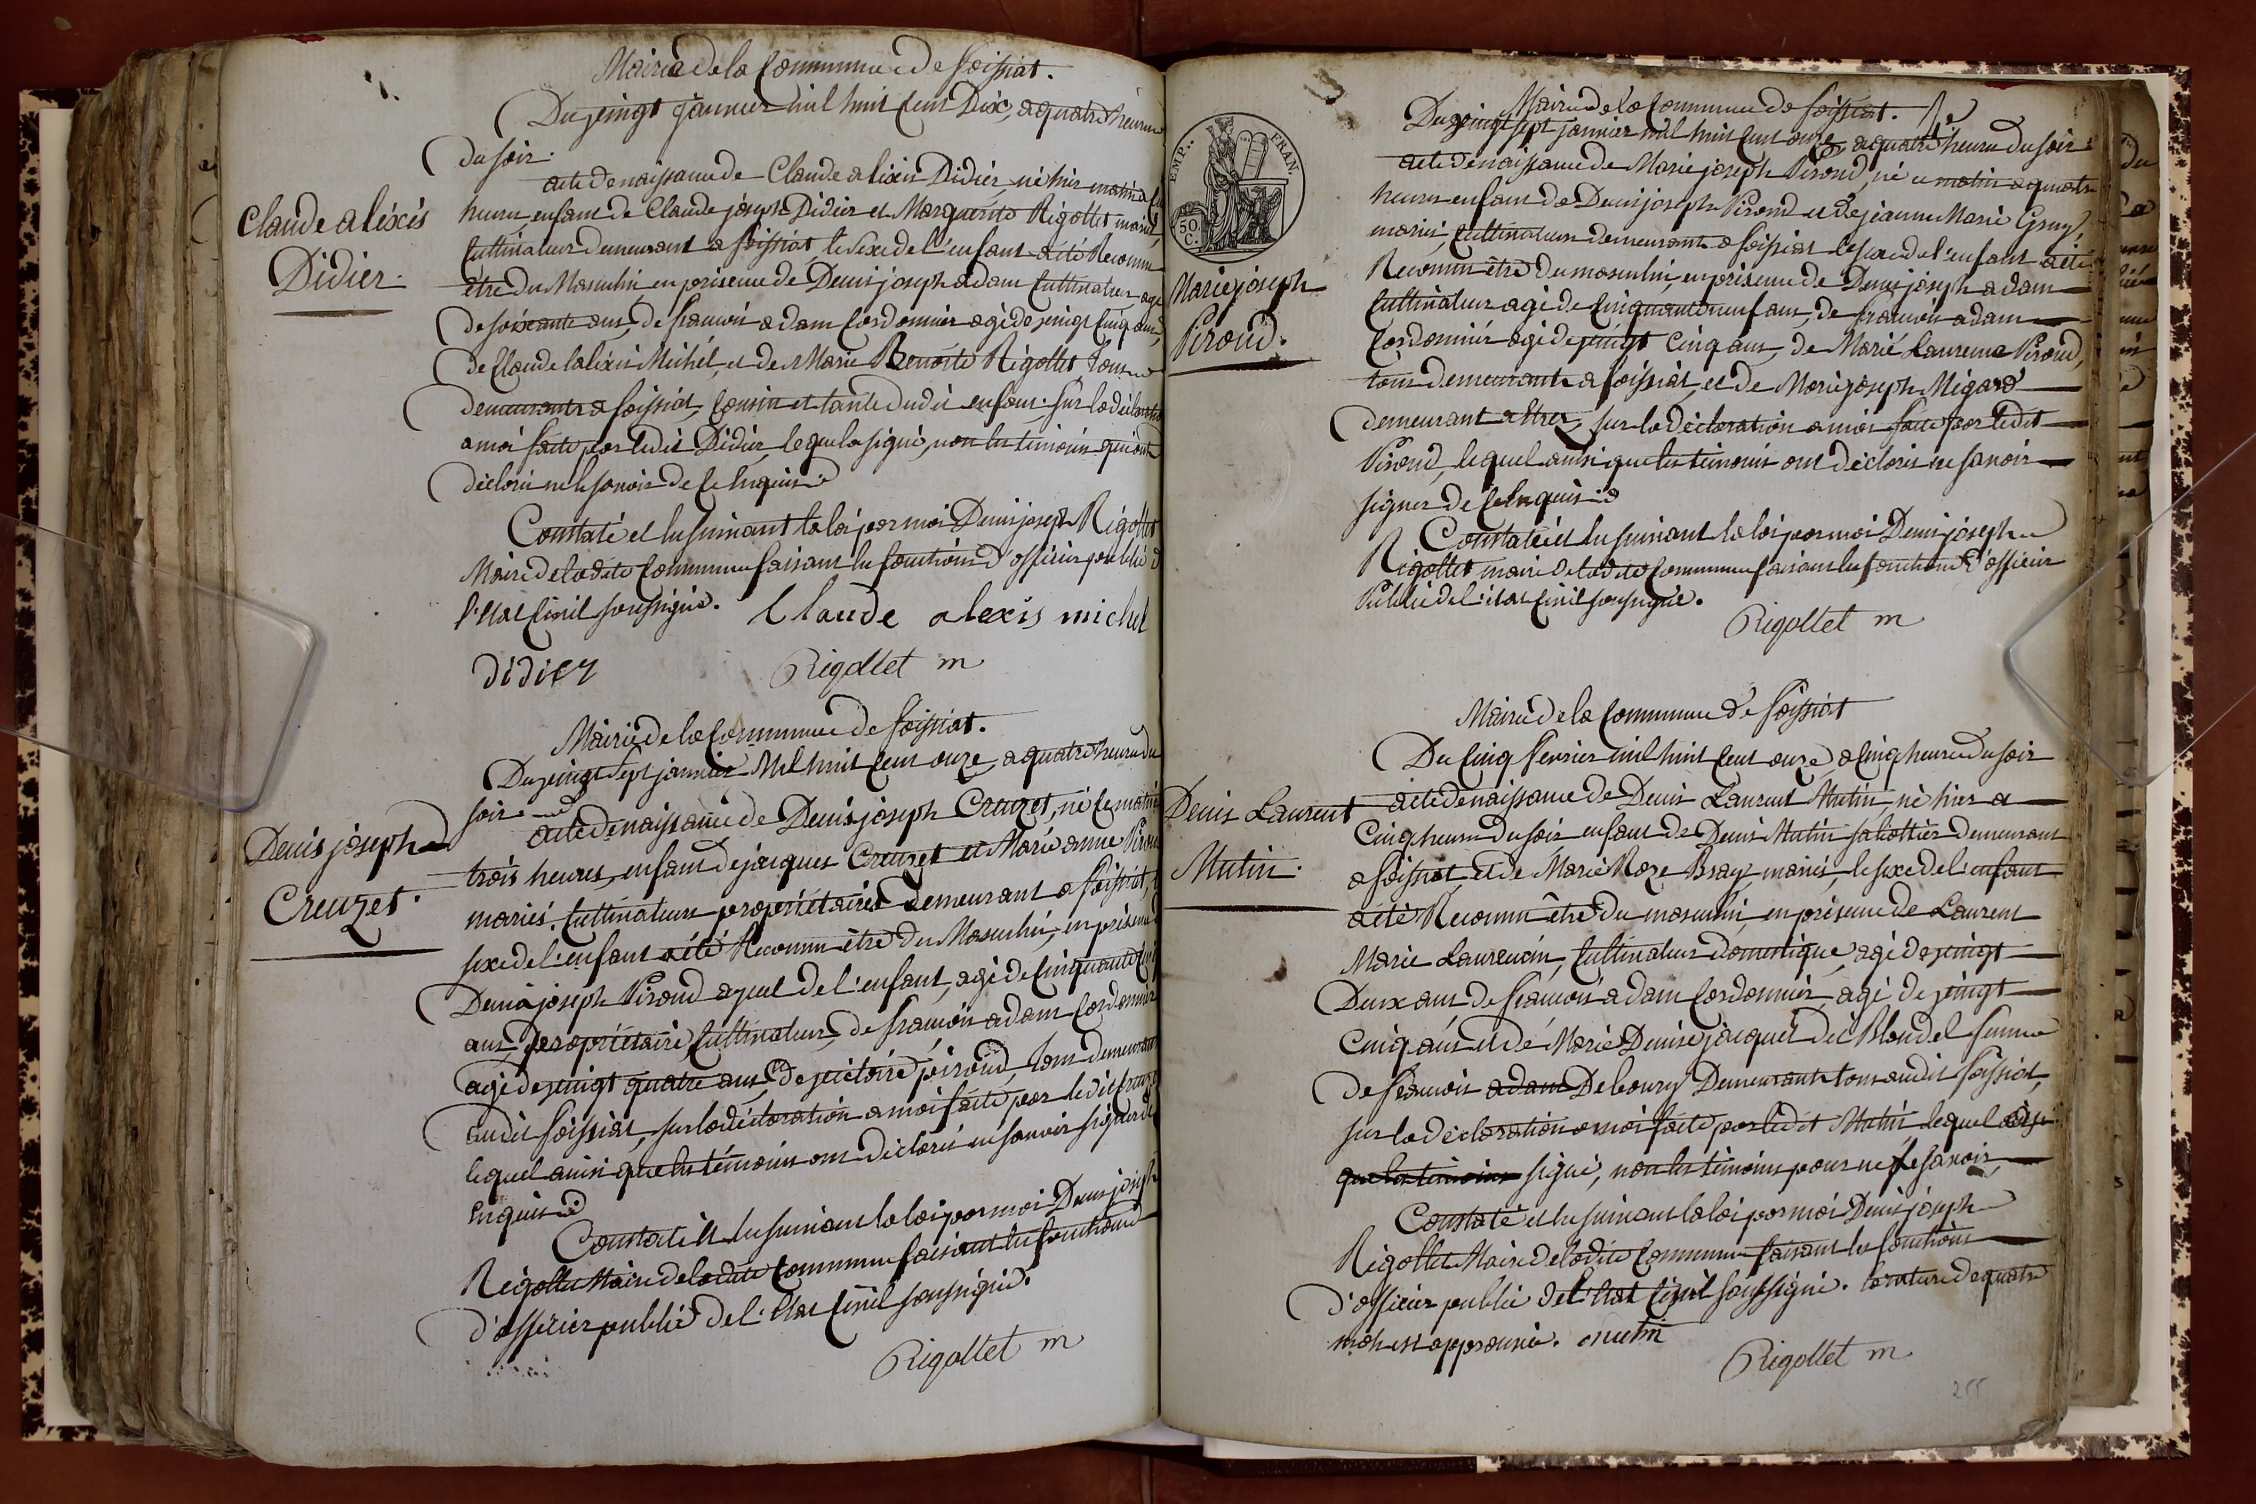 Mairie de la Commune de foissiat.
Du vingt janvier mil huit cent Dix, a quatre heures
du soir.
acte de naissance de Claude alixis Didier, né hier matin a
heures enfant de Claude joseph Didier et Marguerite Rigollet mariés,
Claude aléxis
Didier.
Cultivateurs demeurant a foissiat le sexe de l'enfant a été Reconnu
être du Masculin, en présence de Denis joseph adam Cultivateur agé
de soixante ans, de francois adam Cordonnier agé de vingt Cinq ans,
de Claude lalixis Michel, et de Marie Benoite Rigollet tous
demeurants a foissiat, Cousin et tante dudit enfant. sur la déclaration
a moi faite par ledit Didier, lequel a signé, non les témoins qui ont
déclaré ne le savoir de ce Enquis
Constaté et lu suivant la loi par moi Denis joseph Rigollet
Maire de la dite Commune faisant les fonctions d'officier public d
l'Etat Civil soussigné. Claude alexis michel
didier Rigollet m
Mairie de la Commune de foissiat.
Du vingt sept janvier Mil huit cent onze, a quatre heures du
soir
acte de naissance de Denis joseph Creuzet, né ce matin
Denis joseph
Creuzet.
trois heures, enfant de jacques Creuzet et Marie anne Virond
mariés. Cultivateurs propriétaires demeurant a foissiat,
sexe de l'enfant a été Reconnu être du Masculin, en présence
Denis joseph Virond ayeul de l'enfant, agé de Cinquante
ans, propriétaire Cultivateur, de francois adam Cordonnier
agé de vingt quatre ans, de victoire pirond, tous demeurant
audit foissiat, sur la déclaration a moi faite par le dit Creuzet
lequel ainsi que les témoins ont déclaré ne savoir signer de
Enquis
Constaté et lu suivant la loi par moi Denis joseph
Rigollet Maire de la dite Commune faisant les fonctions
d'officier public de l'Etat Civil soussigné.
Rigollet m
EMP.. FRAN.
50.
C.
Mairie de la Commune de foissiat.
Du vingt sept janvier mil huit cent onze a quatre heures du soir
acte de naissance de Marie joseph Virond, né ce matin a quatre
heures enfant de Denis joseph Virond et de jeanne Marie Gruy,
mariés, Cultivateurs demeurants a foissiat le sexe de l'enfant a été
Marie joseph
Virond.
Reconnu être du masculin, en présence de Denis joseph adam
Cultivateur agé de Cinquante neuf ans, de francois adam
Cordonnier agé de vingt Cinq ans, de Marie Laurence Virond,
tous demeurants a foissiat, et de Marie joseph Migard
demeurant a Etrez, sur la déclaration a moi faite par ledit
Virond, lequel ainsi que les témoins ont déclaré ne savoir
signer de ce Enquis
Constaté et lu suivant la loi par moi Denis joseph
Rigollet maire de la dite Commune faisant les fonctions d'officier
Public de l'état Civil soussigné.
Rigollet m
Mairie de la Commune de foissiat
Du Cinq fevrier mil huit cent onze a Cinq heures du soir
acte de naissance de Denis Laurent Mutin, né hier a
Denis Laurent
Mutin.
Cinq heures du soir enfant de Denis Mutin sabottier demeurant
a foissiat, et de Marie Roze Bray, mariés, le sexe de l'enfant
a été Reconnu être du masculin, en présence de Laurent
Marie Laurencin, Cultivateur domestique, agé de vingt
Deux ans, de francois adam Cordonnier, agé de vingt
Cinq ans et de Marie Denise jacquet dit Blondel femme
de francois adam Debourg Demeurants tous audit foissiat,
sur la déclaration a moi faite par ledit Mutin lequel ainsi
que les témoins signé, non les témoins pour ne le savoir,
Constaté et lu suivant la loi par moi Denis joseph
Rigollet Maire de la dite Commune faisant les fonctions
d'officier public de l'Etat Civil soussigné. la rature de quatre
mots est approuvée. mutin
Rigollet m
255